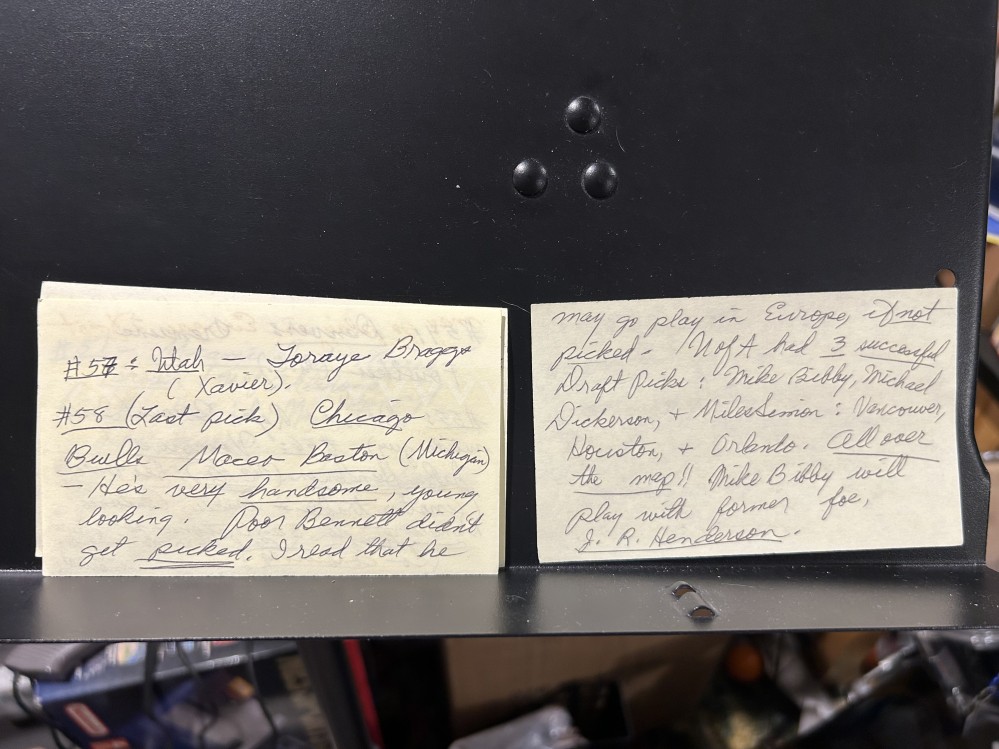 #57 : Utah — Toraye Braggs
( Xavier).
#58 (Last pick) Chicago
Bulls Maceo Baston (Michigan)
- He's very handsome, young
looking. Poor Bennett didn't
get picked. I read that he
may go play in Europe, if not
picked - U of A had 3 successful
Draft Picks : Mike Bibby, Michael
Dickerson, + Miles Simon : Vancouver,
Houston, + Orlando. All over
the map!! Mike Bibby will
play with former foe,
J. R. Henderson.